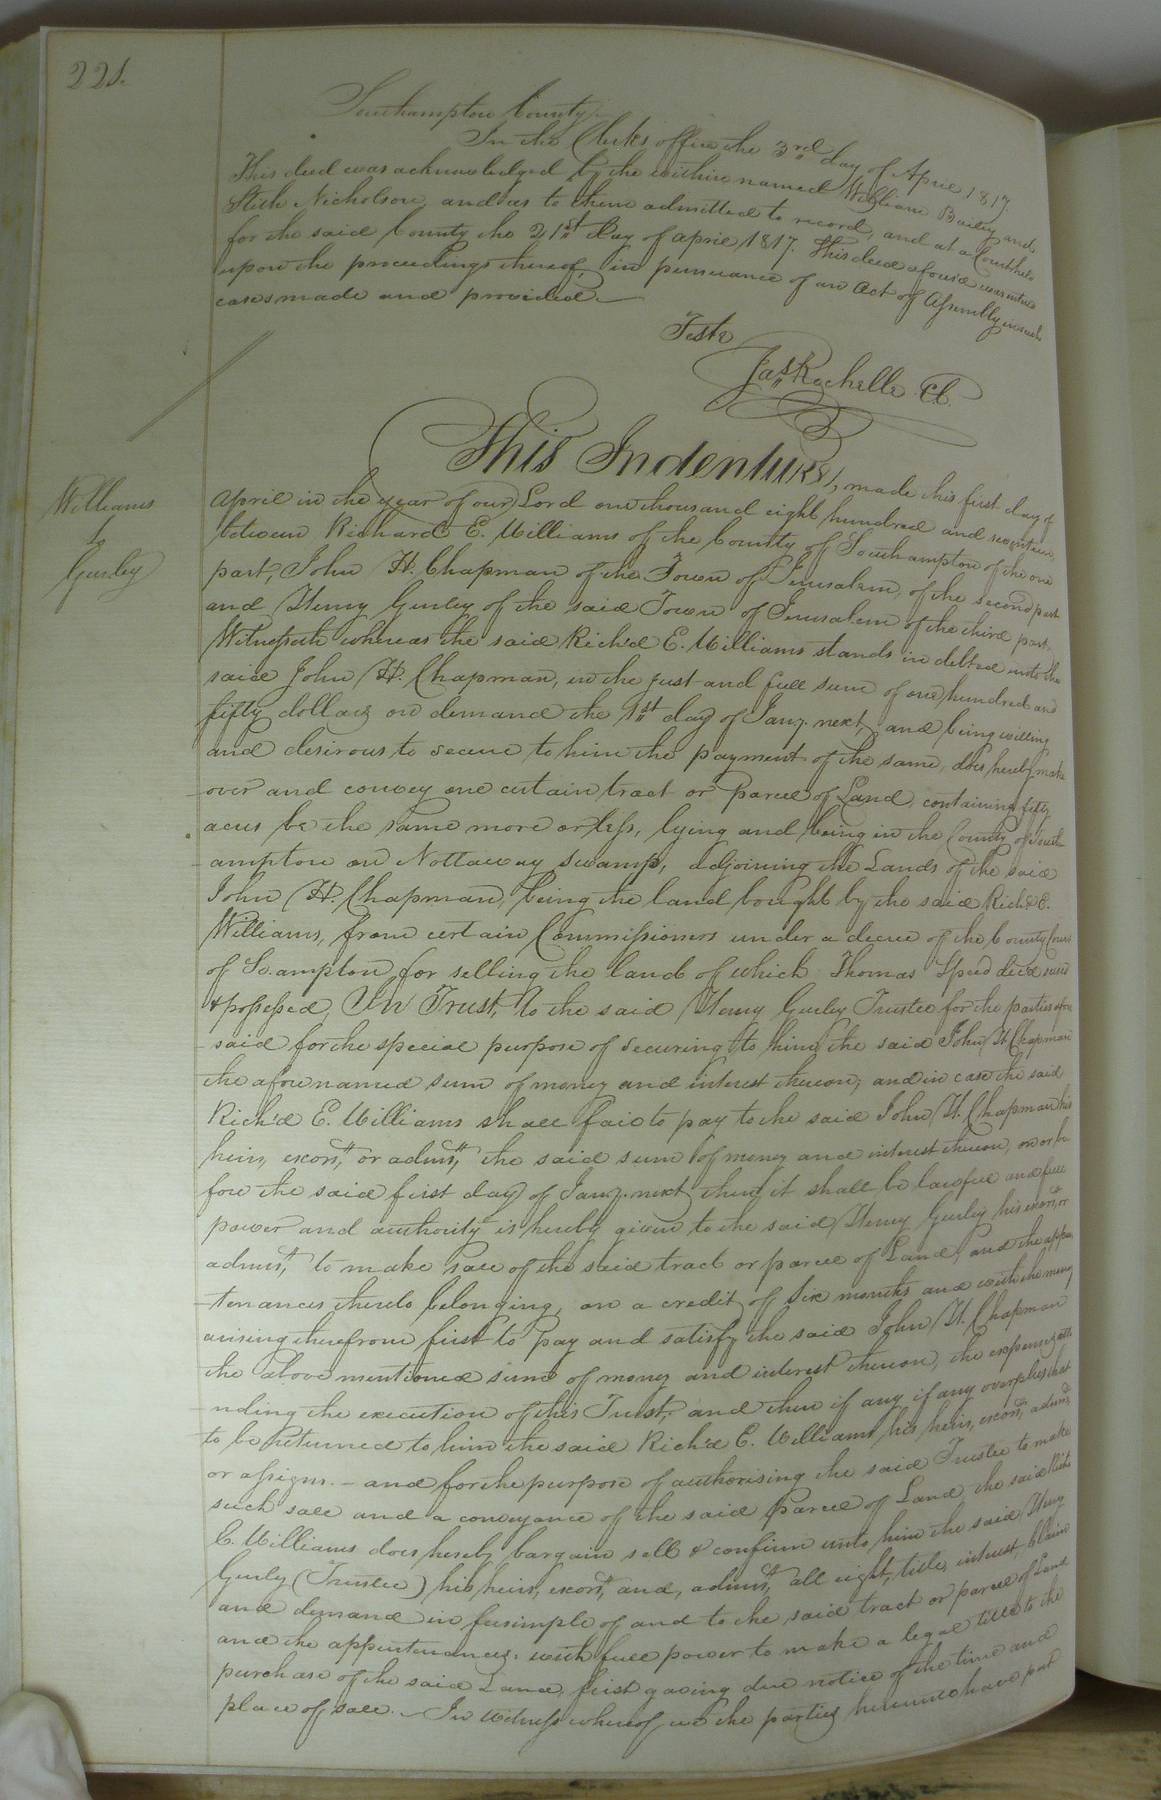 221.
Southampton County.
In the Clerks office the 3rd day of April 1817
This deed was acknowledged by the within named William Bailey and
Nicholson and as to them admitted to record, and at a Court held
for the said County the 21st day of april 1817. This deed aforesd was
upon the proceedings thereof, in pursuance of an act of Assembly in such
cases made and provided.
Teste
Jas Rochelle Cl.
Williams
to
Gurley
This Indenture, made this first day of
April in the year of our Lord one thousand eight hundred and seventeen,
between Richard E. Williams of the County of Southampton of the one
part, John H. Chapman of the Town of Jerusalem, of the second part
and Henry Gurley of the said Town of Jerusalem of the third part.
Witnesseth whereas the said Richd E. Williams stands in debted unto the
said John H. Chapman, in the just and full sum of one hundred and
fifty dollars on demand the 1st day of Jany. next, and being willing
and desirous to secure to him the payment of the same, does hereby make
over and convey one certain tract or parcel of Land, containing fifty
acres be the same more or less, lying and being in the County of South-
ampton on Nottaway swamp, adjoining the Lands of the said
John H. Chapman, being the land bought by the said Richd E.
Williams, from certain Commissioners under a decree of the County Court
of So.ampton for selling the land of which Thomas Speed died seized
& possessed, In Trust, to the said Henry Gurley Trustee for the parties afore
said for the special purpose of securing to him the said John H. Chapman
the afore named sum of money and interest thereon, and in case the said
Rich'd E. Williams shall fail to pay to the said John H. Chapman his
heirs, exors, or admrs, the said sum of money and interest thereon, on or be
fore the said first day of Jany. next then it shall be lawful and full
power and authority is hereby given to the said Henry Gurley his exors, or
admrs, to make sale of the said tract or parcel of Land, and the appur
tenances thereto belonging, on a credit of six months and with the money
arising therefrom first to pay and satisfy the said John H. Chapman
the above mentioned sum of money and interest thereon, the expenses atte
nding the execution of this Trust, and then if any if any overplus that
to be returned to him the said Rich'd E. Williams his heirs, exors, admrs,
or assigns. - and for the purpose of authorising the said Trustee to make
such sale and a conveyance of the said parcel of Land the said Richd
E. Williams does hereby bargain sell & confirm unto him the said Henry
Gurley (Trustee) his heirs, exors, and, admrs, all right, title, interest, claim
and demand in feesimple of and to the said tract or parcel of Land
and the appurtenances. with full power to make a legal title to the
purchase of the said Land, first giving due notice of the time and
place of sale. - In witness whereof we the parties hereunto have put